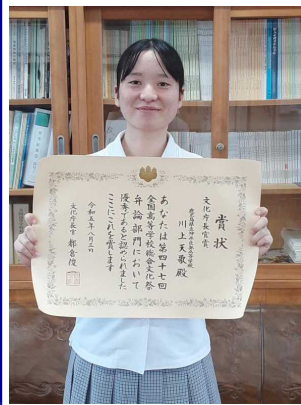 賞状
文化庁長官賞
川上天歌殿
あなたは第四十七回
全国高等学校総合文化祭
弁論部門において
優秀であると認められました
ここにこれを賞します
令和五年八月三日
文化庁長官 都倉俊一